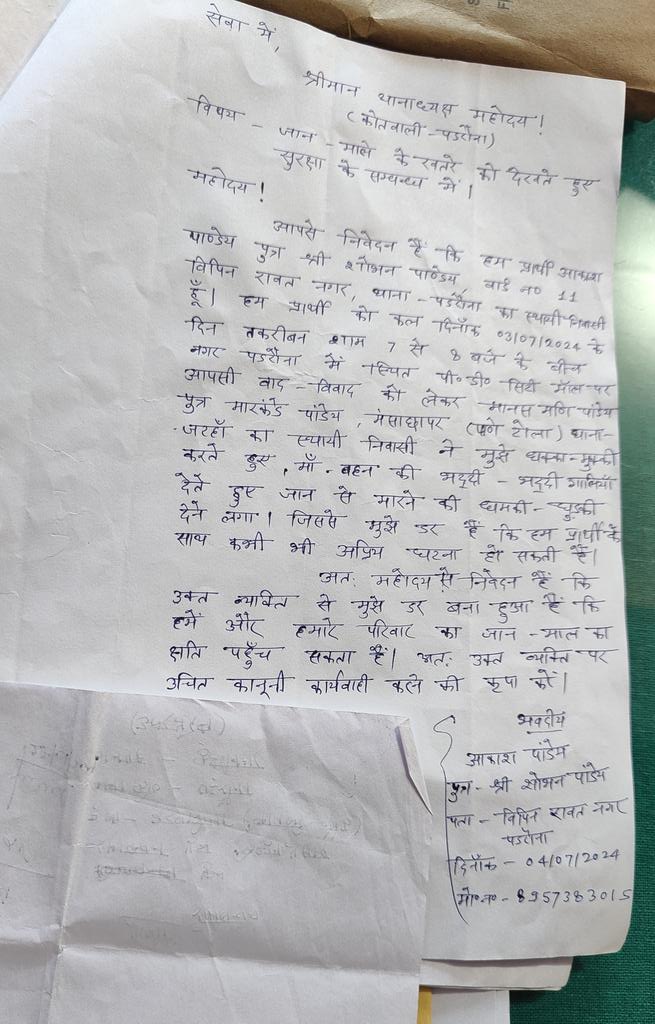 सेवा में,
श्रीमान थानाध्यक्ष महोदय!
(कोतवाली-पडरौना)
विषय - जान-माल के खतरे को देखते हुए
सुरक्षा के सम्बन्ध में।
महोदय!
आपसे निवेदन है कि हम प्रार्थी आकाश
पाण्डेय पुत्र श्री शोभन पाण्डेय, वार्ड न० 11
विपिन रावत नगर, थाना-पडरौना का स्थायी निवासी
हूँ। हम प्रार्थी को कल दिनाँक 03/07/2024 के
दिन तकरीबन शाम 7 से 8 बजे के बीच
नगर पडरौना में स्थित पी०डी० सिटी मॉल पर
आपसी वाद-विवाद को लेकर मानस मणि पांडेय
पुत्र मारकंडे पांडेय, मंसाछापर (पाण्डे टोला) थाना-
जटहाँ का स्थायी निवासी ने मुझे धक्का-मुक्की
करते हुए, माँ-बहन की भद्दी-भद्दी गालियाँ
देते हुए जान से मारने की धमकी-घुड़की
देने लगा। जिससे मुझे डर है कि हम प्रार्थी के
साथ कभी भी अप्रिय घटना हो सकती है।
अतः महोदय से निवेदन है कि
उक्त व्यक्ति से मुझे डर बना हुआ है कि
हमें और हमारे परिवार का जान-माल का
क्षति पहुँच सकता है। अतः उक्त व्यक्ति पर
उचित कानूनी कार्यवाही करने की कृपा करें।
भवदीय
आकाश पांडेय
पुत्र-श्री शोभन पांडेय
पता-विपिन रावत नगर
पडरौना
दिनाँक-04/07/2024
मो०न०-8957383015